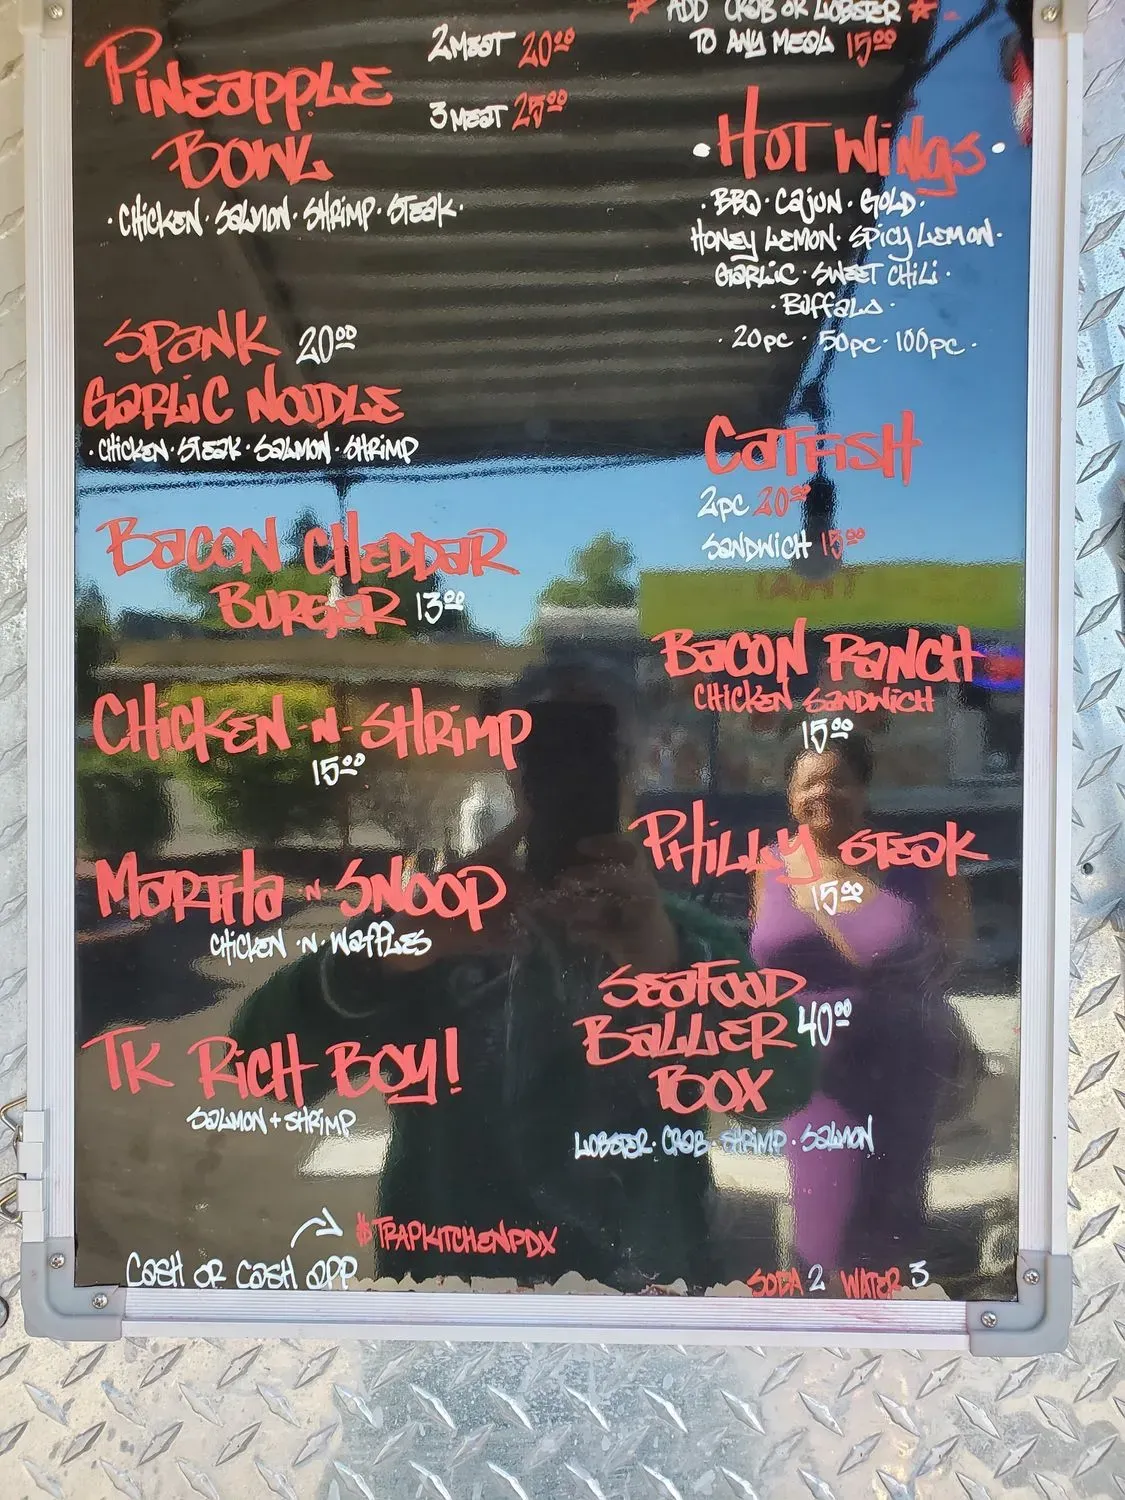 PINEAPPLE
BOWL
2 MEAT 20.00
3 MEAT 25.00
· CHICKEN · SALMON · SHRIMP · STEAK ·
SPANK 20.00
GARLIC NOODLE
· CHICKEN · STEAK · SALMON · SHRIMP
BACON CHEDDAR
BURGER 13.00
CHICKEN -N- SHRIMP
15.00
MARTHA N SNOOP
CHICKEN ·N· WAFFLES
TK RICH BOY!
SALMON + SHRIMP
$TRAPKITCHENPDX
CASH OR CASH APP
ADD CRAB OR LOBSTER
TO ANY MEAL 15.00
· HOT WINGS ·
· BBQ · CAJUN · GOLD ·
HONEY LEMON · SPICY LEMON ·
GARLIC · SWEET CHILI ·
· BUFFALO ·
· 20PC · 50PC · 100PC ·
CATFISH
2PC 20.00
SANDWICH 15.00
BACON RANCH
CHICKEN SANDWICH
15.00
PHILLY STEAK
15.00
SEAFOOD
BALLER 40.00
BOX
LOBSTER · CRAB · SHRIMP · SALMON
SODA 2 WATER 3